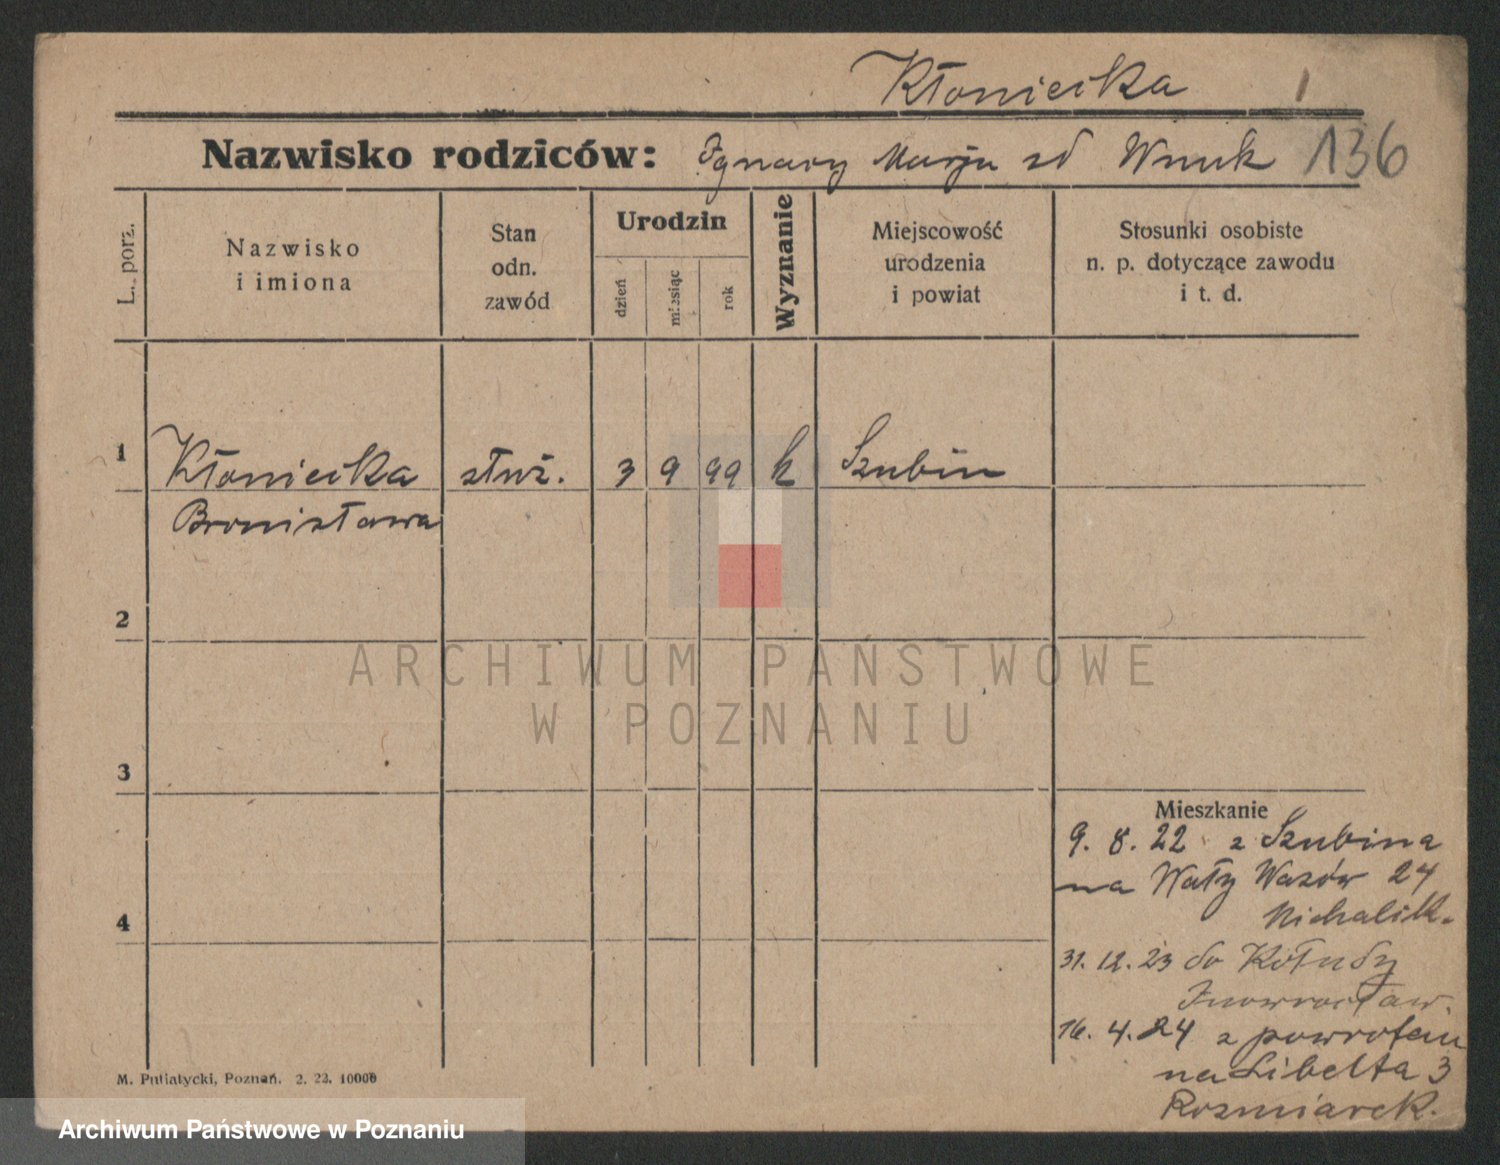 Kłoniecka
Nazwisko rodziców: Ignacy Marja zd Wnuk 136
L. porz.
Nazwisko
i imiona
Stan
odn.
zawód
Urodzin
dzień
miesiąc
rok
Wyznanie
Miejscowość
urodzenia
i powiat
Stosunki osobiste
n. p. dotyczące zawodu
i t. d.
1 Kłoniecka służ. 3 9 99 k Szubin
Bronisława
2
ARCHIWUM PAŃSTWOWE
W POZNANIU
3
Mieszkanie
9. 8. 22 z Szubina
na Wały Wazów 24
Michalik.
4
31. 12. 23 do Kołudy
Inowrocław.
16. 4. 24 z powrotem
na Libelta 3
Rozmiarek.
M. Putiatycki, Poznań. 2. 23. 10000
Archiwum Państwowe w Poznaniu